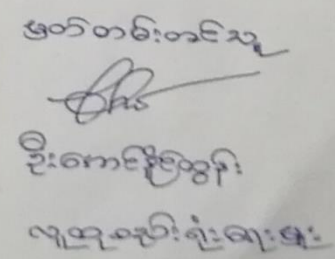 မှတ်တမ်းတင်သူ
ဦးအောင်နိုင်ထွန်း
လူထုစည်းရုံးရေးမှူး